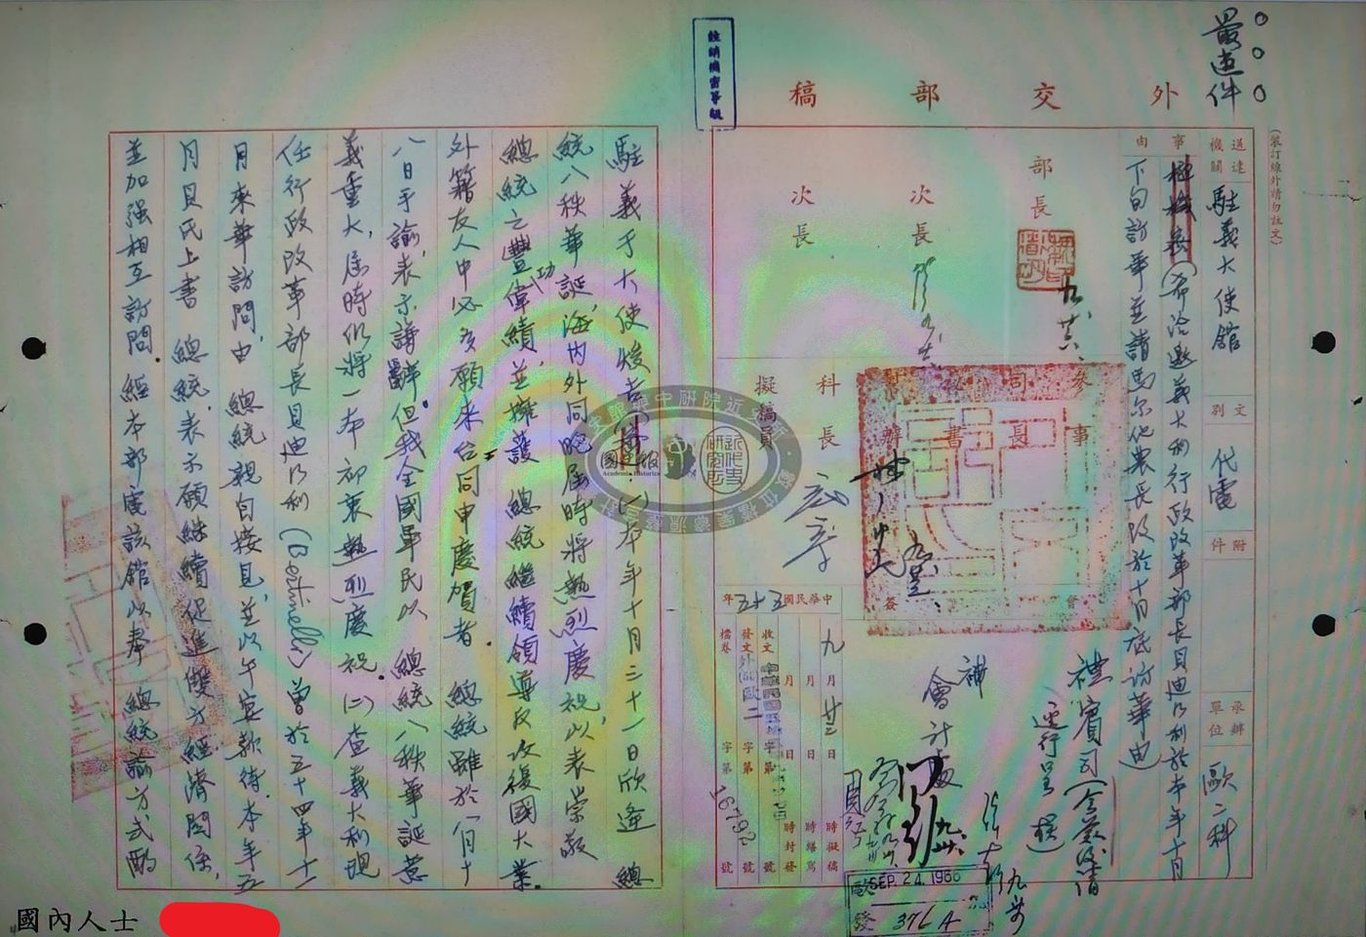 最速件
外交部稿
註銷機密等級
(裝訂線外請勿註文)
送達機關 駐義大使館
文別 代電
附件
承辦單位 歐二科
事由
希洽邀義大利行政改革部長貝迪乃利於本年十月
下旬訪華並請馬尔他農長改於十月底訪華由
部長
次長
次長
科長
擬稿員
參事
司長
秘書
會簽
禮賓司
會計處
中華民國五十五年
九月廿三日 時擬稿
月 日 時繕寫
月 日 時封發
收文 字第 號
發文 外 歐二 字第 16792 號
檔卷
SEP 24 1966
發 376A
駐義于大使
(一)本年十月三十一日欣逢 總
統八秩華誕,海內外同胞屆時將熱烈慶祝,以表崇敬
總統之豐功偉績,並擁護 總統繼續領導反攻復國大業。
外籍友人中必多願來台同申慶賀者。總統雖於八月十
八日手諭,表示謙辭。但我全國軍民以 總統八秩華誕意
義重大,屆時仍將一本初衷熱烈慶祝。(二)查義大利現
任行政改革部長貝迪乃利(Bertinelli)曾於五十四年十一
月來華訪問,由 總統親自接見,並以午宴款待。本年五
月貝氏上書 總統,表示願繼續促進雙方經濟關係,
並加强相互訪問。經本部電該館以奉 總統諭方式酌
國內人士